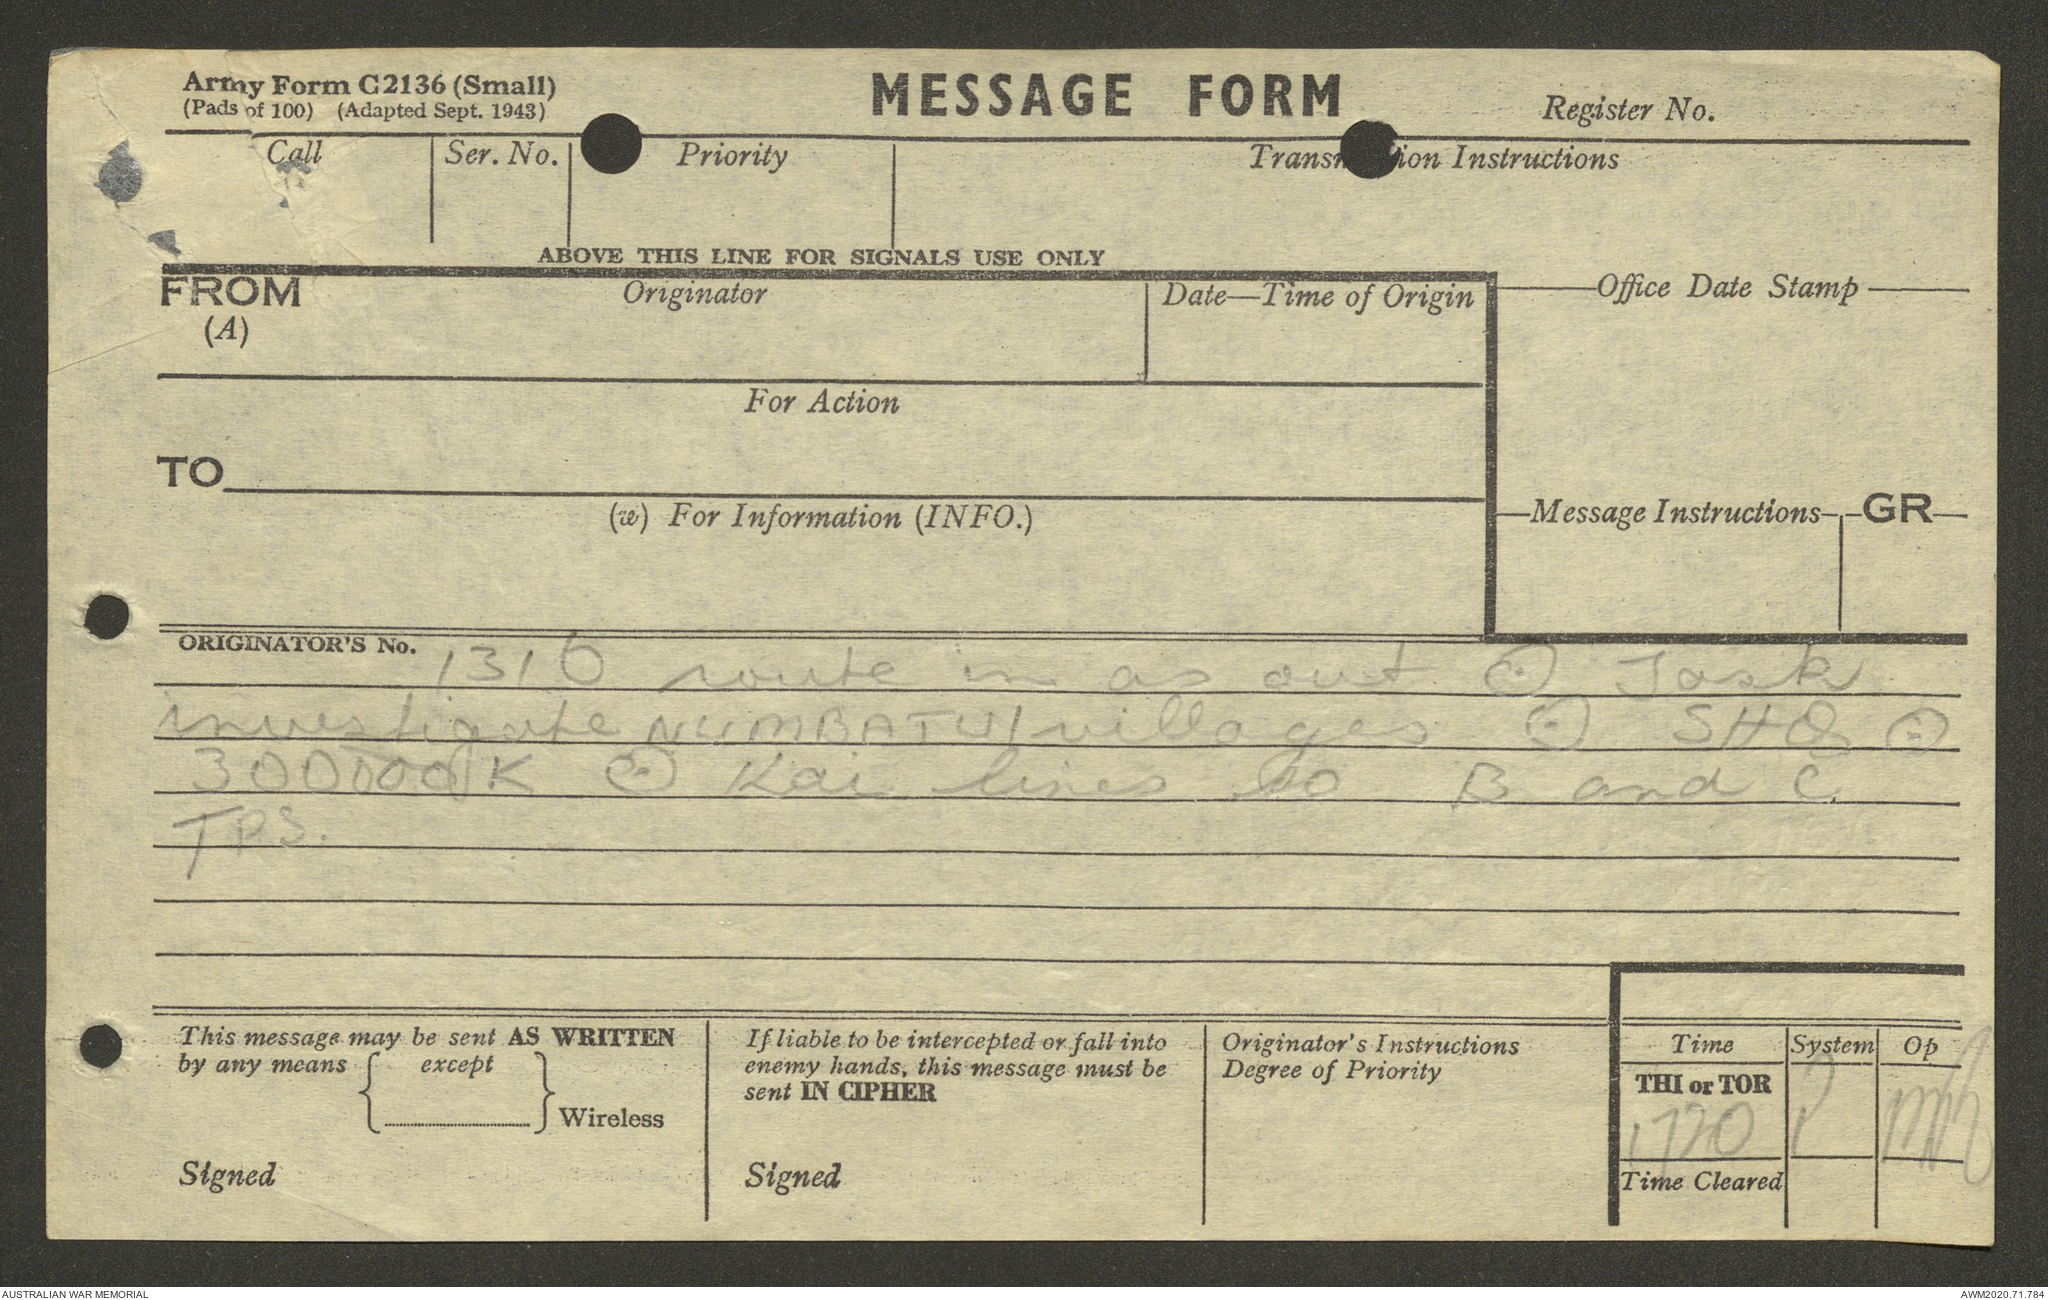 Army Form C2136 (Small)
(Pads of 100) (Adapted Sept. 1943)
MESSAGE FORM
Register No.
Call
Ser. No.
Priority
Transm ion Instructions
ABOVE THIS LINE FOR SIGNALS USE ONLY
FROM
(A)
Originator
Date—Time of Origin
Office Date Stamp
For Action
TO
(w) For Information (INFO.)
Message Instructions
GR
ORIGINATOR'S No.
1316 route in as out ⊙ Task
investigate NUMBATUI villages ⊙ SHQ ⊙
K ⊙ Kai lines to B and C
TPS.
This message may be sent AS WRITTEN
by any means except
Wireless
Signed
If liable to be intercepted or fall into
enemy hands, this message must be
sent IN CIPHER
Signed
Originator's Instructions
Degree of Priority
Time System Op
THI or TOR
1720
Time Cleared
AUSTRALIAN WAR MEMORIAL
AWM2020.71.784